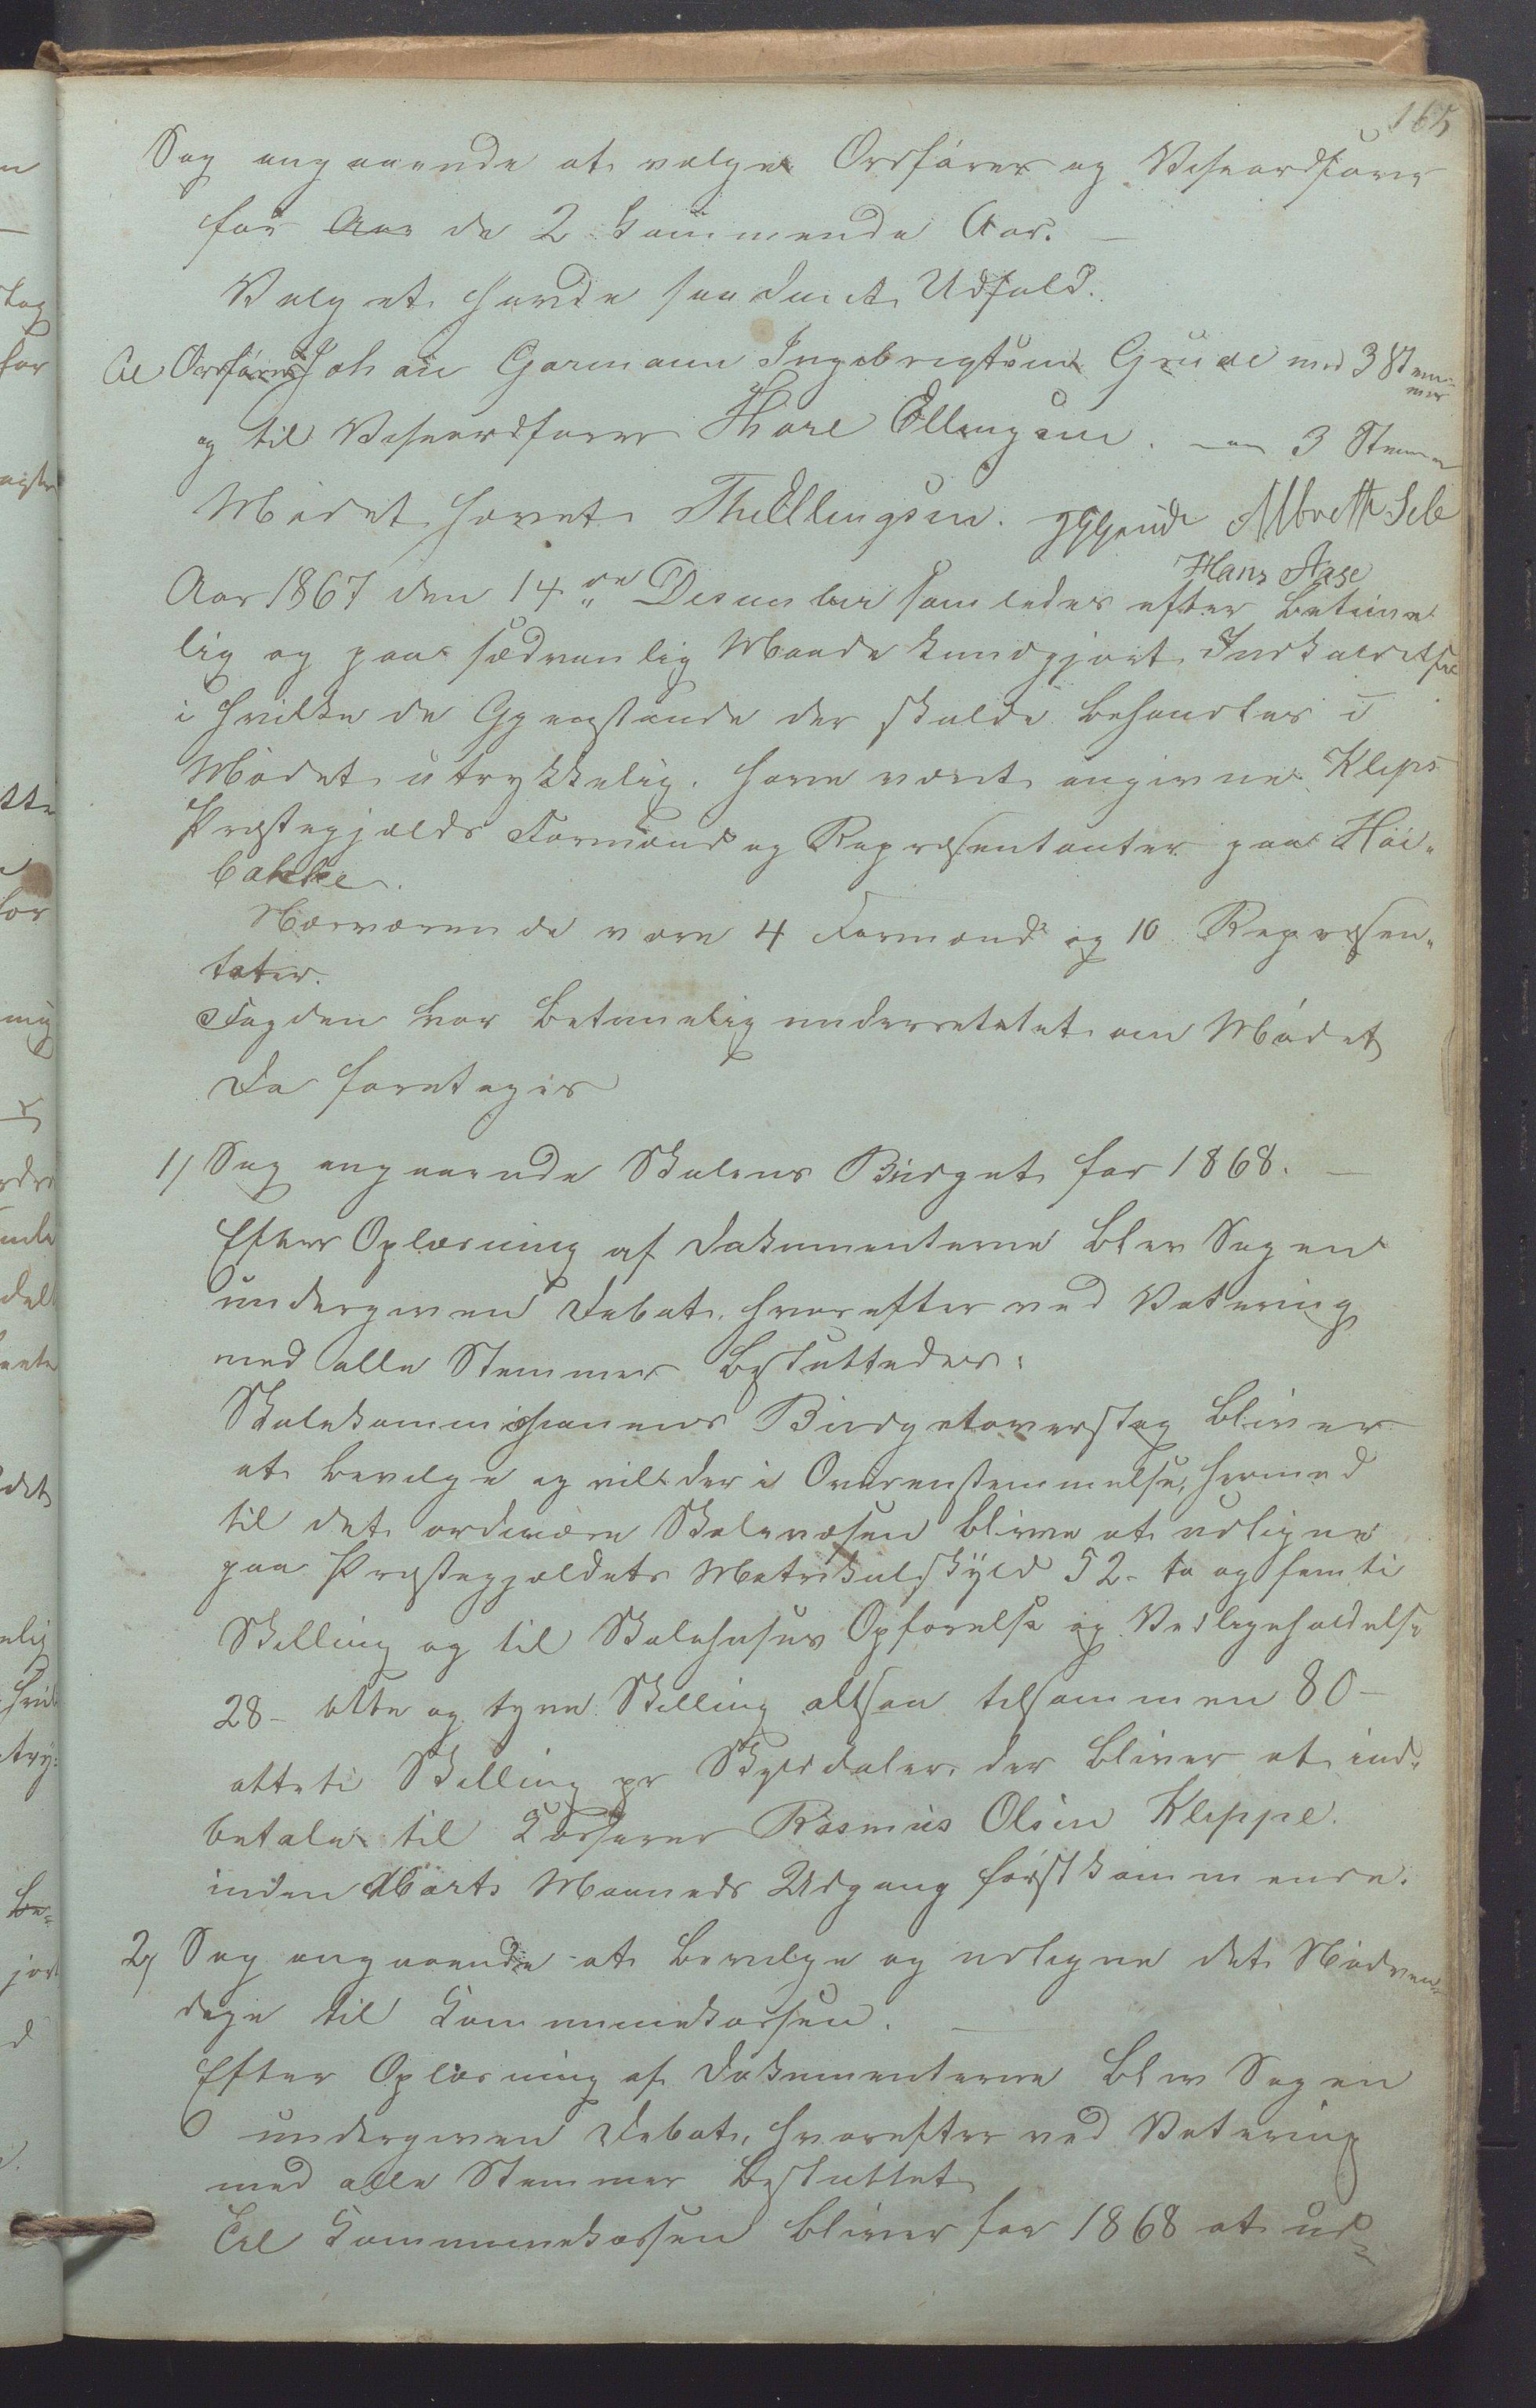 165
Sag angaaende at valge Ordfører og Viseordfører
for Aar de 2 kommende Aar. —
Valget havde saadant Udfald.
Til Ordfører Johan Garmann Ingebrigtsen Grude med 3 Stem-
mer
og til Viseordforer Thore Ellingsen. — 3 Stemer
Mødet hævet. Th Ellingsen. Albrett Sele
Hans Aase
Aar 1867 den 14de Desember samledes efter betime
lig og paa sædvanlig Maade kundgjort Indkaldelse
i hvilke de Gjenstande der skulde behandles i
Mødet utrykkelig have været angivne Kleps
Præstegjælds Formænd og Repræsentanter paa Høi-
bakke.
Nærværende vare 4 Formænd og 10 Repræsen-
tater.
Fogden var betimelig underrettet om Mødet
Da foretages
1/ Sag angaaende Skolens Budget for 1868. —
Efter Oplæsning af Dokumenterne blev Sagen
undergiven Debat, hvorefter ved Votering
med alle Stemmer besluttedes:
Skolekommisionens Budgetoverslag bliver
at bevilge og vill der i Overenstemmelse, hermed
til det ordinære Skolevæsen blive at udligne
paa Præstegjældets Matrikulskyld 52- to og femti
Skilling og til Skolehuses Opførelse og Vedligeholdelse
28- otte og tyve Skilling altsaa tilsammen 80-
otteti Skilling pr Skylddaler, der bliver at ind-
betale til Kasserer Rasmus Olsen Kleppe.
inden Marts Maaneds Udgang førstkommende.
2) Sag angaaende at bevilge og udligne det Nødven-
dige til Kommunekassen. —
Efter Oplæsning af Dokumenterne blev Sagen
undergiven Debat, hvorefter ved Votering
med alle Stemmer besluttet
Til Kommunekassen bliver for 1868 at ud-